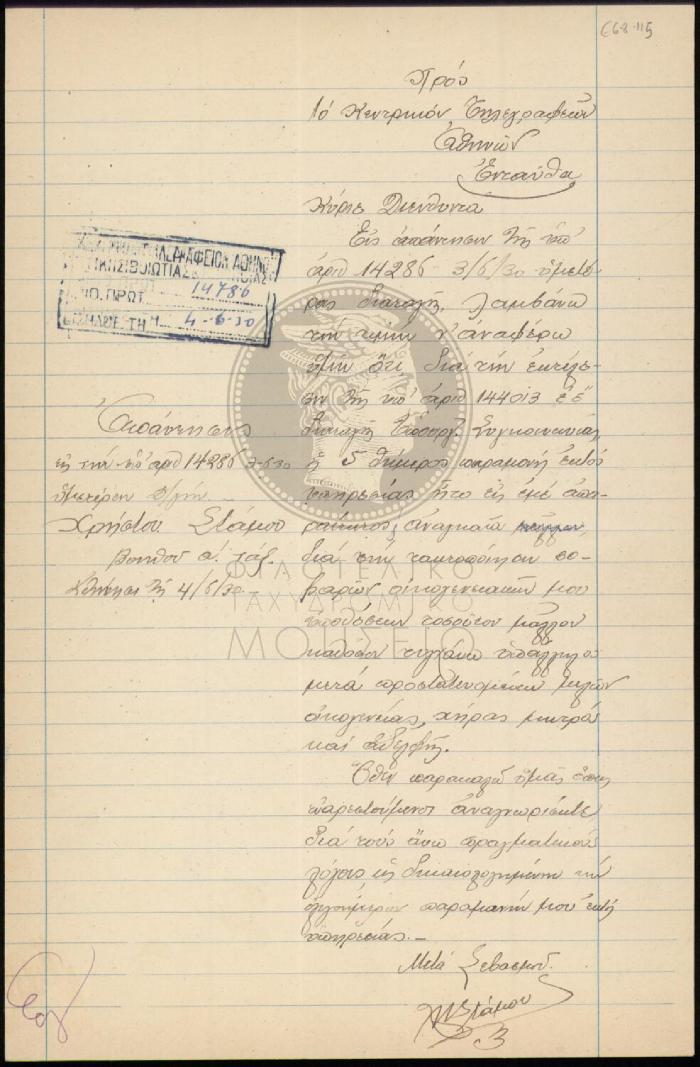 668-115
Πρός
Τό Κεντρικόν Τηλεγραφείον
Ἀθηνῶν
Ἐνταῦθα
Κύριε Διευθυντά
Εἰς ἀπάντησιν τῆς ὑπ'
ἀριθ 14286 3/6/30 ὑμετέ-
ρας διαταγῆς, λαμβάνω
τήν τιμήν ν' ἀναφέρω
ὑμῖν ὅτι διά τήν ἐκτέλε-
σιν τῆς ὑπ' ἀριθ 144013 ἐ.ἔ
διαταγῆς Ὑπουργ. Συγκοινωνίας
ἡ 5 θήμερος παραμονή ἐκτός
ὑπηρεσίας ἦτο εἰς ἐμέ ἀπα-
ραίτητος, ἀναγκαία
διά τήν τακτοποίησιν σο-
βαρῶν οἰκογενειακῶν μου
ὑποθέσεων τοσοῦτον μᾶλλον
καθόσον τυγχάνω ὑπάλληλος
μετά προστατευομένων μελῶν
οἰκογενείας, χήρας μητρός
καί ἀδελφῆς.
Ὅθεν παρακαλῶ ὑμᾶς ὅπως
εὐαρεστούμενοι ἀναγνωρίσητε
διά τούς ἄνω πραγματικούς
λόγους ὡς δικαιολογημένην τήν
ὀλιγοήμερον παραμονήν μου ἐκτός
ὑπηρεσίας.-
Μετά Σεβασμοῦ
Χ Στάμου
ΤΗΛΕΓΡΑΦΕΙΟΝ ΑΘΗΝΩΝ
ΠΡΩΤ. 14786
ΕΙΣΗΛΘΕ ΤΗ 4-6-30
Ἀπάντησις
εἰς τήν ὑπ' ἀριθ 14286 3-6-30
ὑμετέραν δ/γήν
Χρήστου Στάμου
βοηθοῦ α' τάξ.
Ἀθῆναι τῇ 4/6/30
ΦΙΛΟΤΕΛΙΚΟ
ΤΑΧΥΔΡΟΜΙΚΟ
ΜΟΥΣΕΙΟ